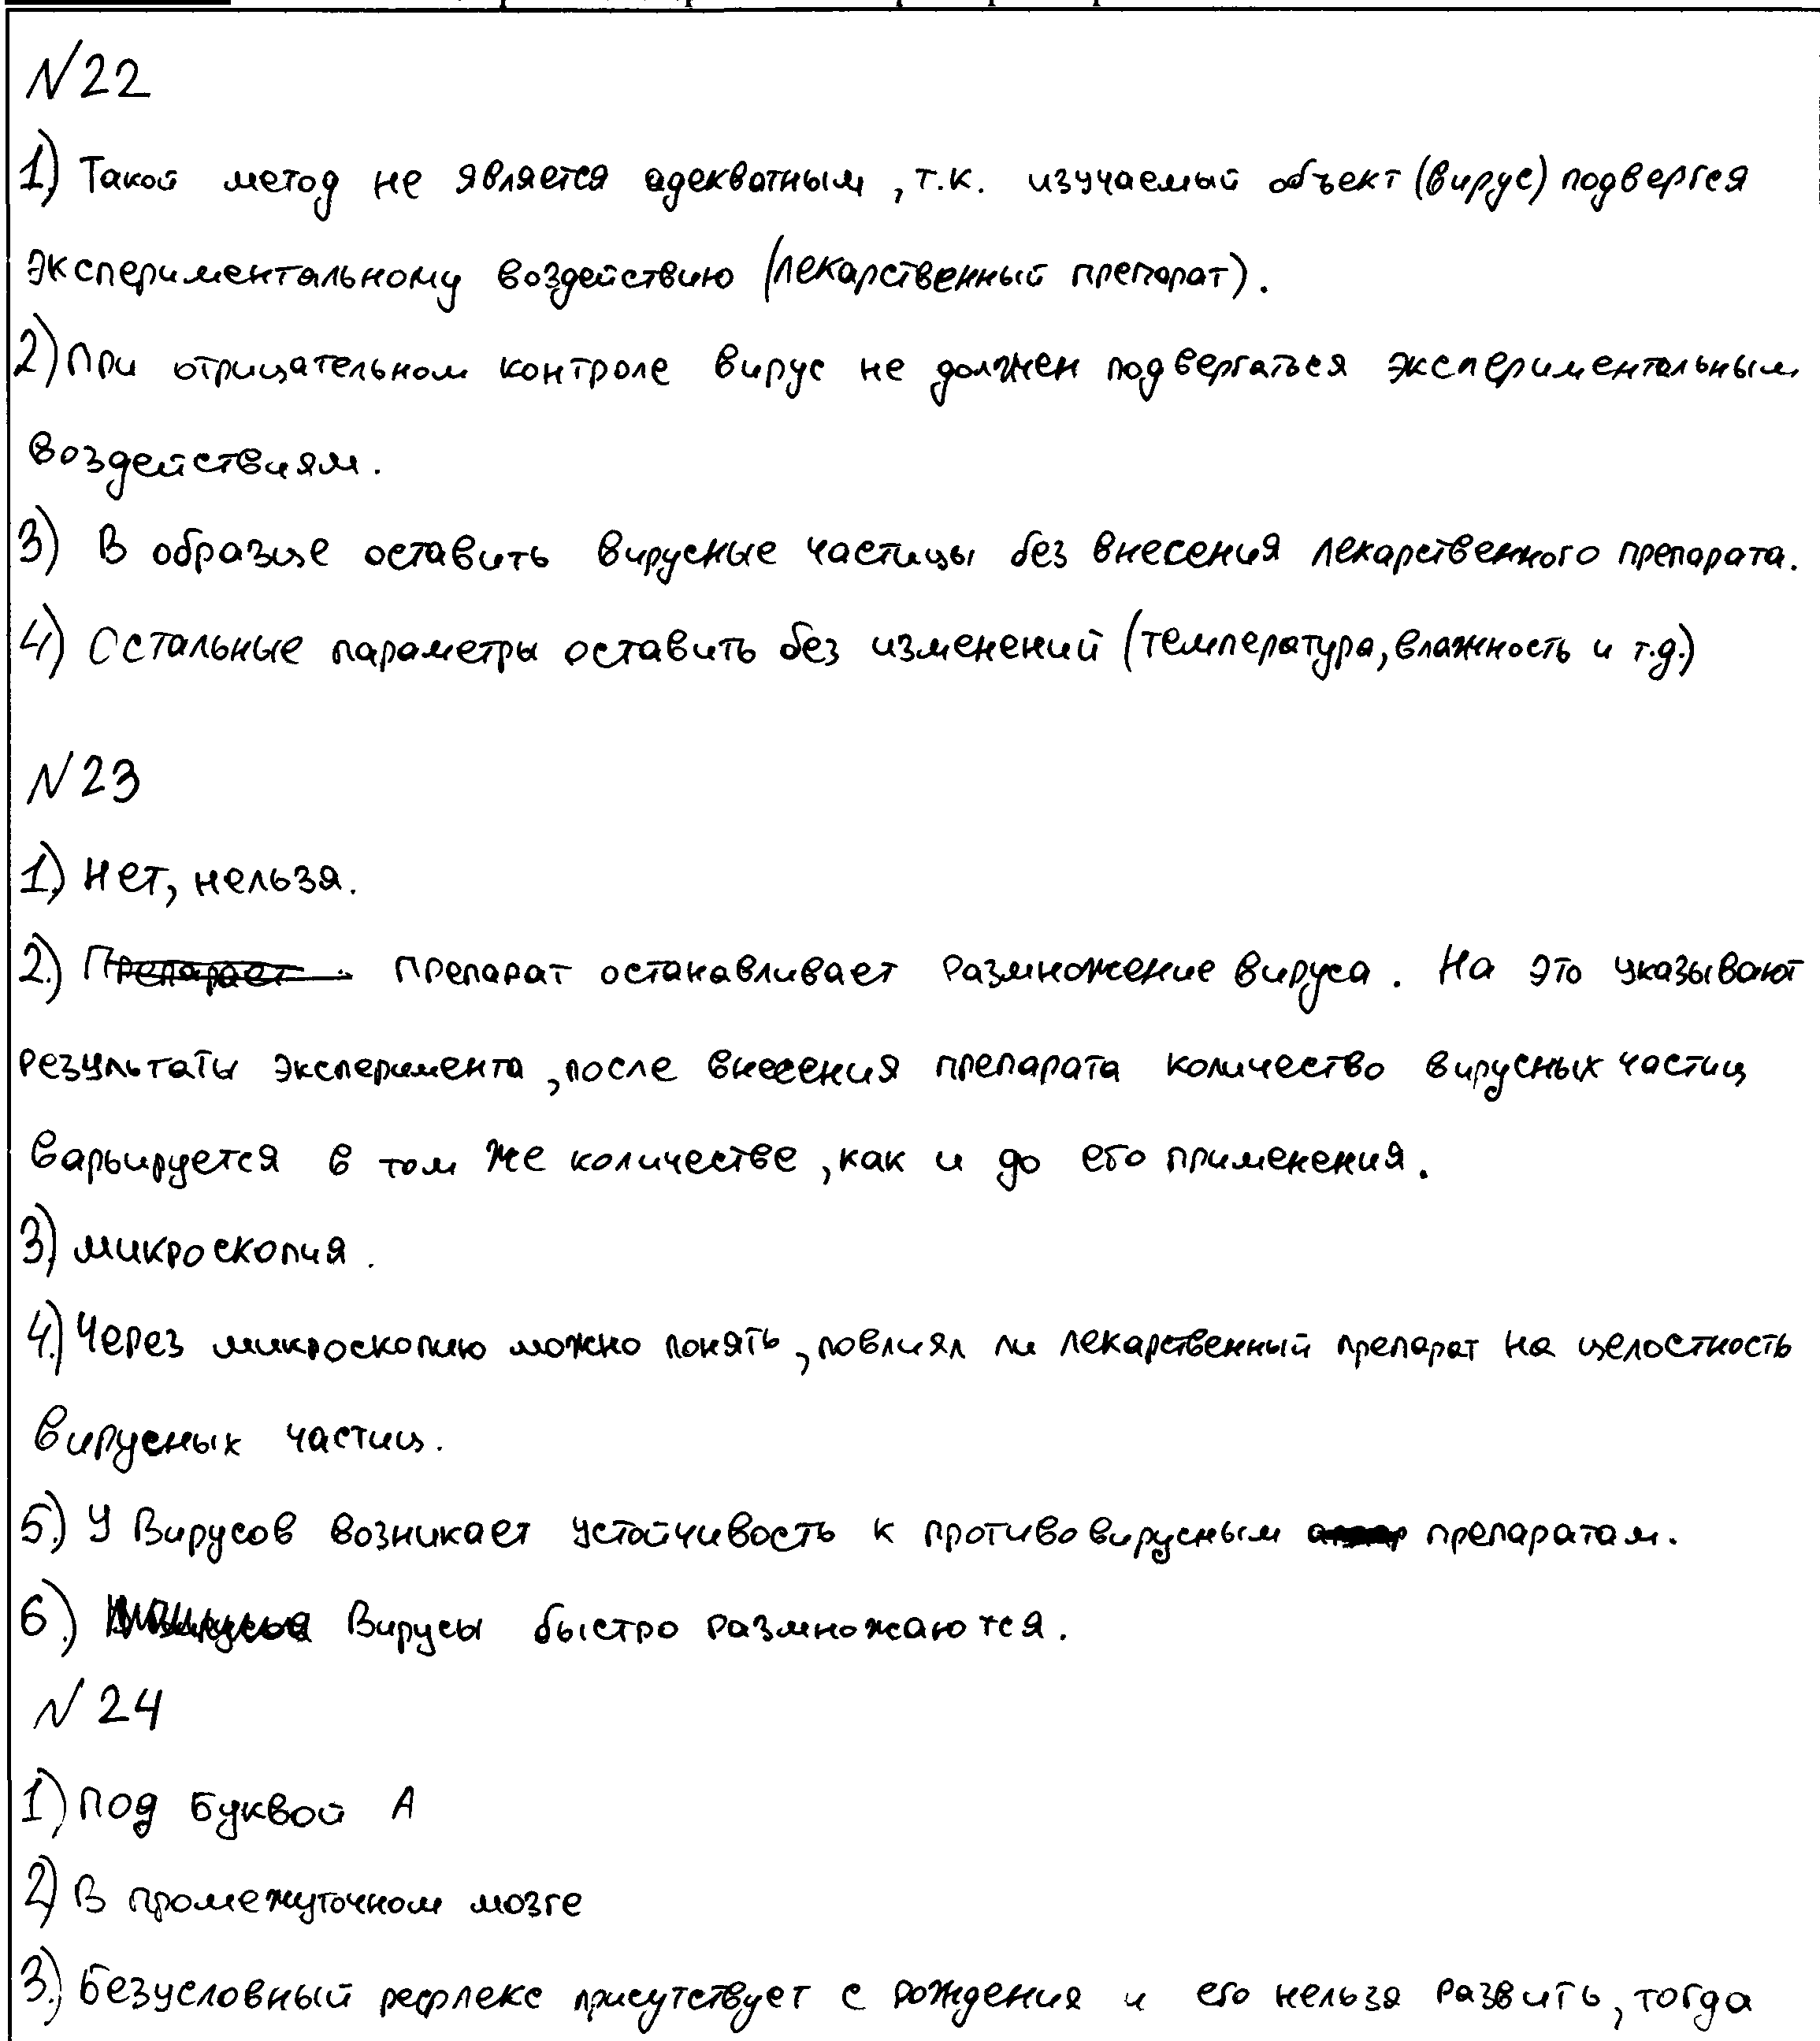 №22
1) Такой метод не является адекватным, т.к. изучаемый объект (вирус) подвергся
экспериментальному воздействию (лекарственный препарат).
2) При отрицательном контроле вирус не должен подвергаться экспериментальным
воздействиям.
3) В образце оставить вирусные частицы без внесения лекарственного препарата.
4) Остальные параметры оставить без изменений (температура, влажность и т.д.)
№23
1) Нет, нельзя.
2) Препарат останавливает размножение вируса. На это указывают
результаты эксперимента, после внесения препарата количество вирусных частиц
варьируется в том же количестве, как и до его применения.
3) микроскопия.
4) Через микроскопию можно понять, повлиял ли лекарственный препарат на целостность
вирусных частиц.
5) У Вирусов возникает устойчивость к противовирусным препаратам.
6) Вирусы быстро размножаются.
№24
1) Под буквой А
2) В промежуточном мозге
3) Безусловный рефлекс присутствует с рождения и его нельзя развить, тогда